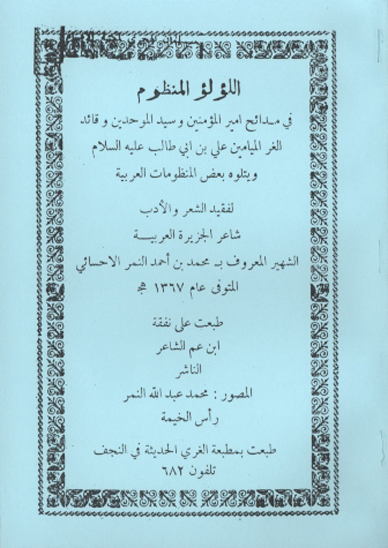 اللؤلؤ المنظوم
في مدائح امير المؤمنين وسيد الموحدين وقائد
للغر الميامين علي بن ابي طالب عليه السلام
ويتلوه بعض المنظومات العربية
لفقيد الشعر والأدب
شاعر الجزيرة العربية
الشهير المعروف بـ محمد بن أحمد النمر الاحسائي
المتوفى عام ١٣٦٧ هج
طبعت على نفقة
ابن عم الشاعر
الناشر
المصور : محمد عبد الله النمر
رأس الخيمة
طبعت بمطبعة الغري الحديثة في النجف
تلفون ٦٨٢